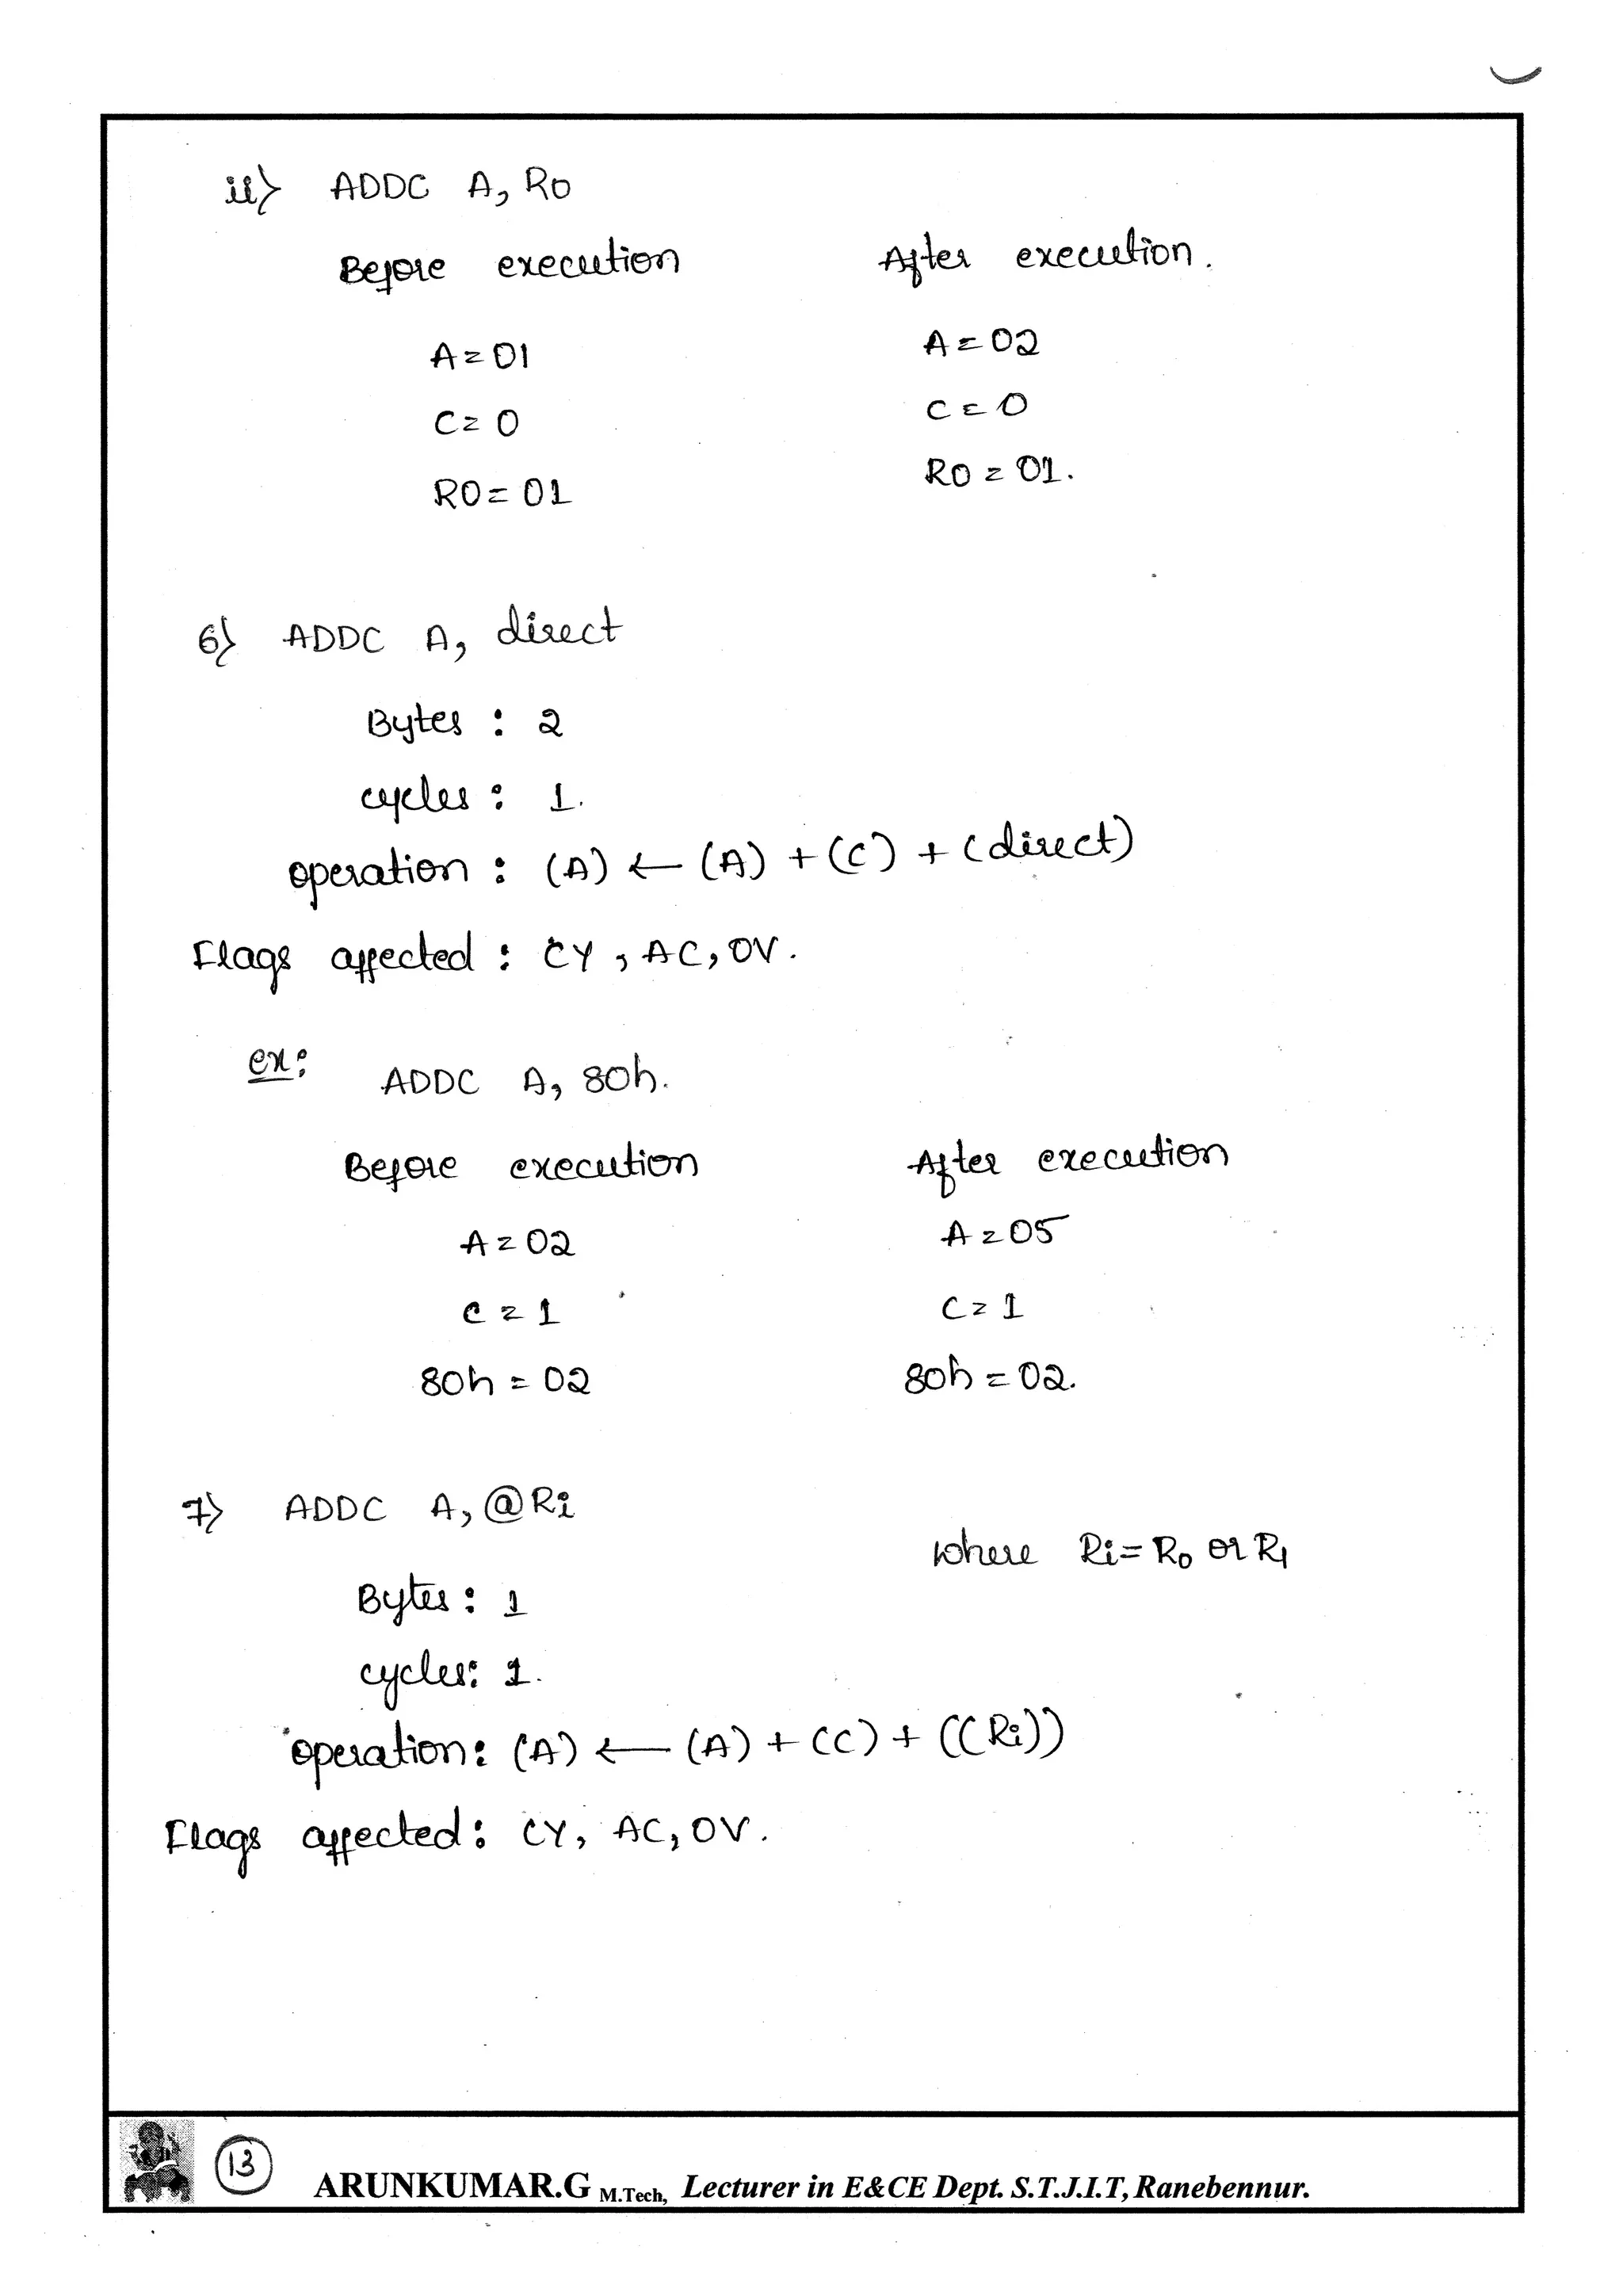 ii) ADDC A, R0
Before execution After execution.
A = 01 A = 02
C = 0 C = 0
R0 = 01 R0 = 01.
6) ADDC A, direct
Bytes : 2
cycles : 1.
operation : (A) ← (A) + (C) + (direct)
Flags affected : CY, AC, OV.
ex: ADDC A, 80h.
Before execution After execution
A = 02 A = 05
C = 1 C = 1
80h = 02 80h = 02.
7) ADDC A, @Ri
where Ri = R0 or R1
Bytes : 1
cycles: 1.
operation: (A) ← (A) + (C) + ((Ri))
Flags affected: CY, AC, OV.
13 ARUNKUMAR.G M.Tech, Lecturer in E&CE Dept. S.T.J.I.T, Ranebennur.